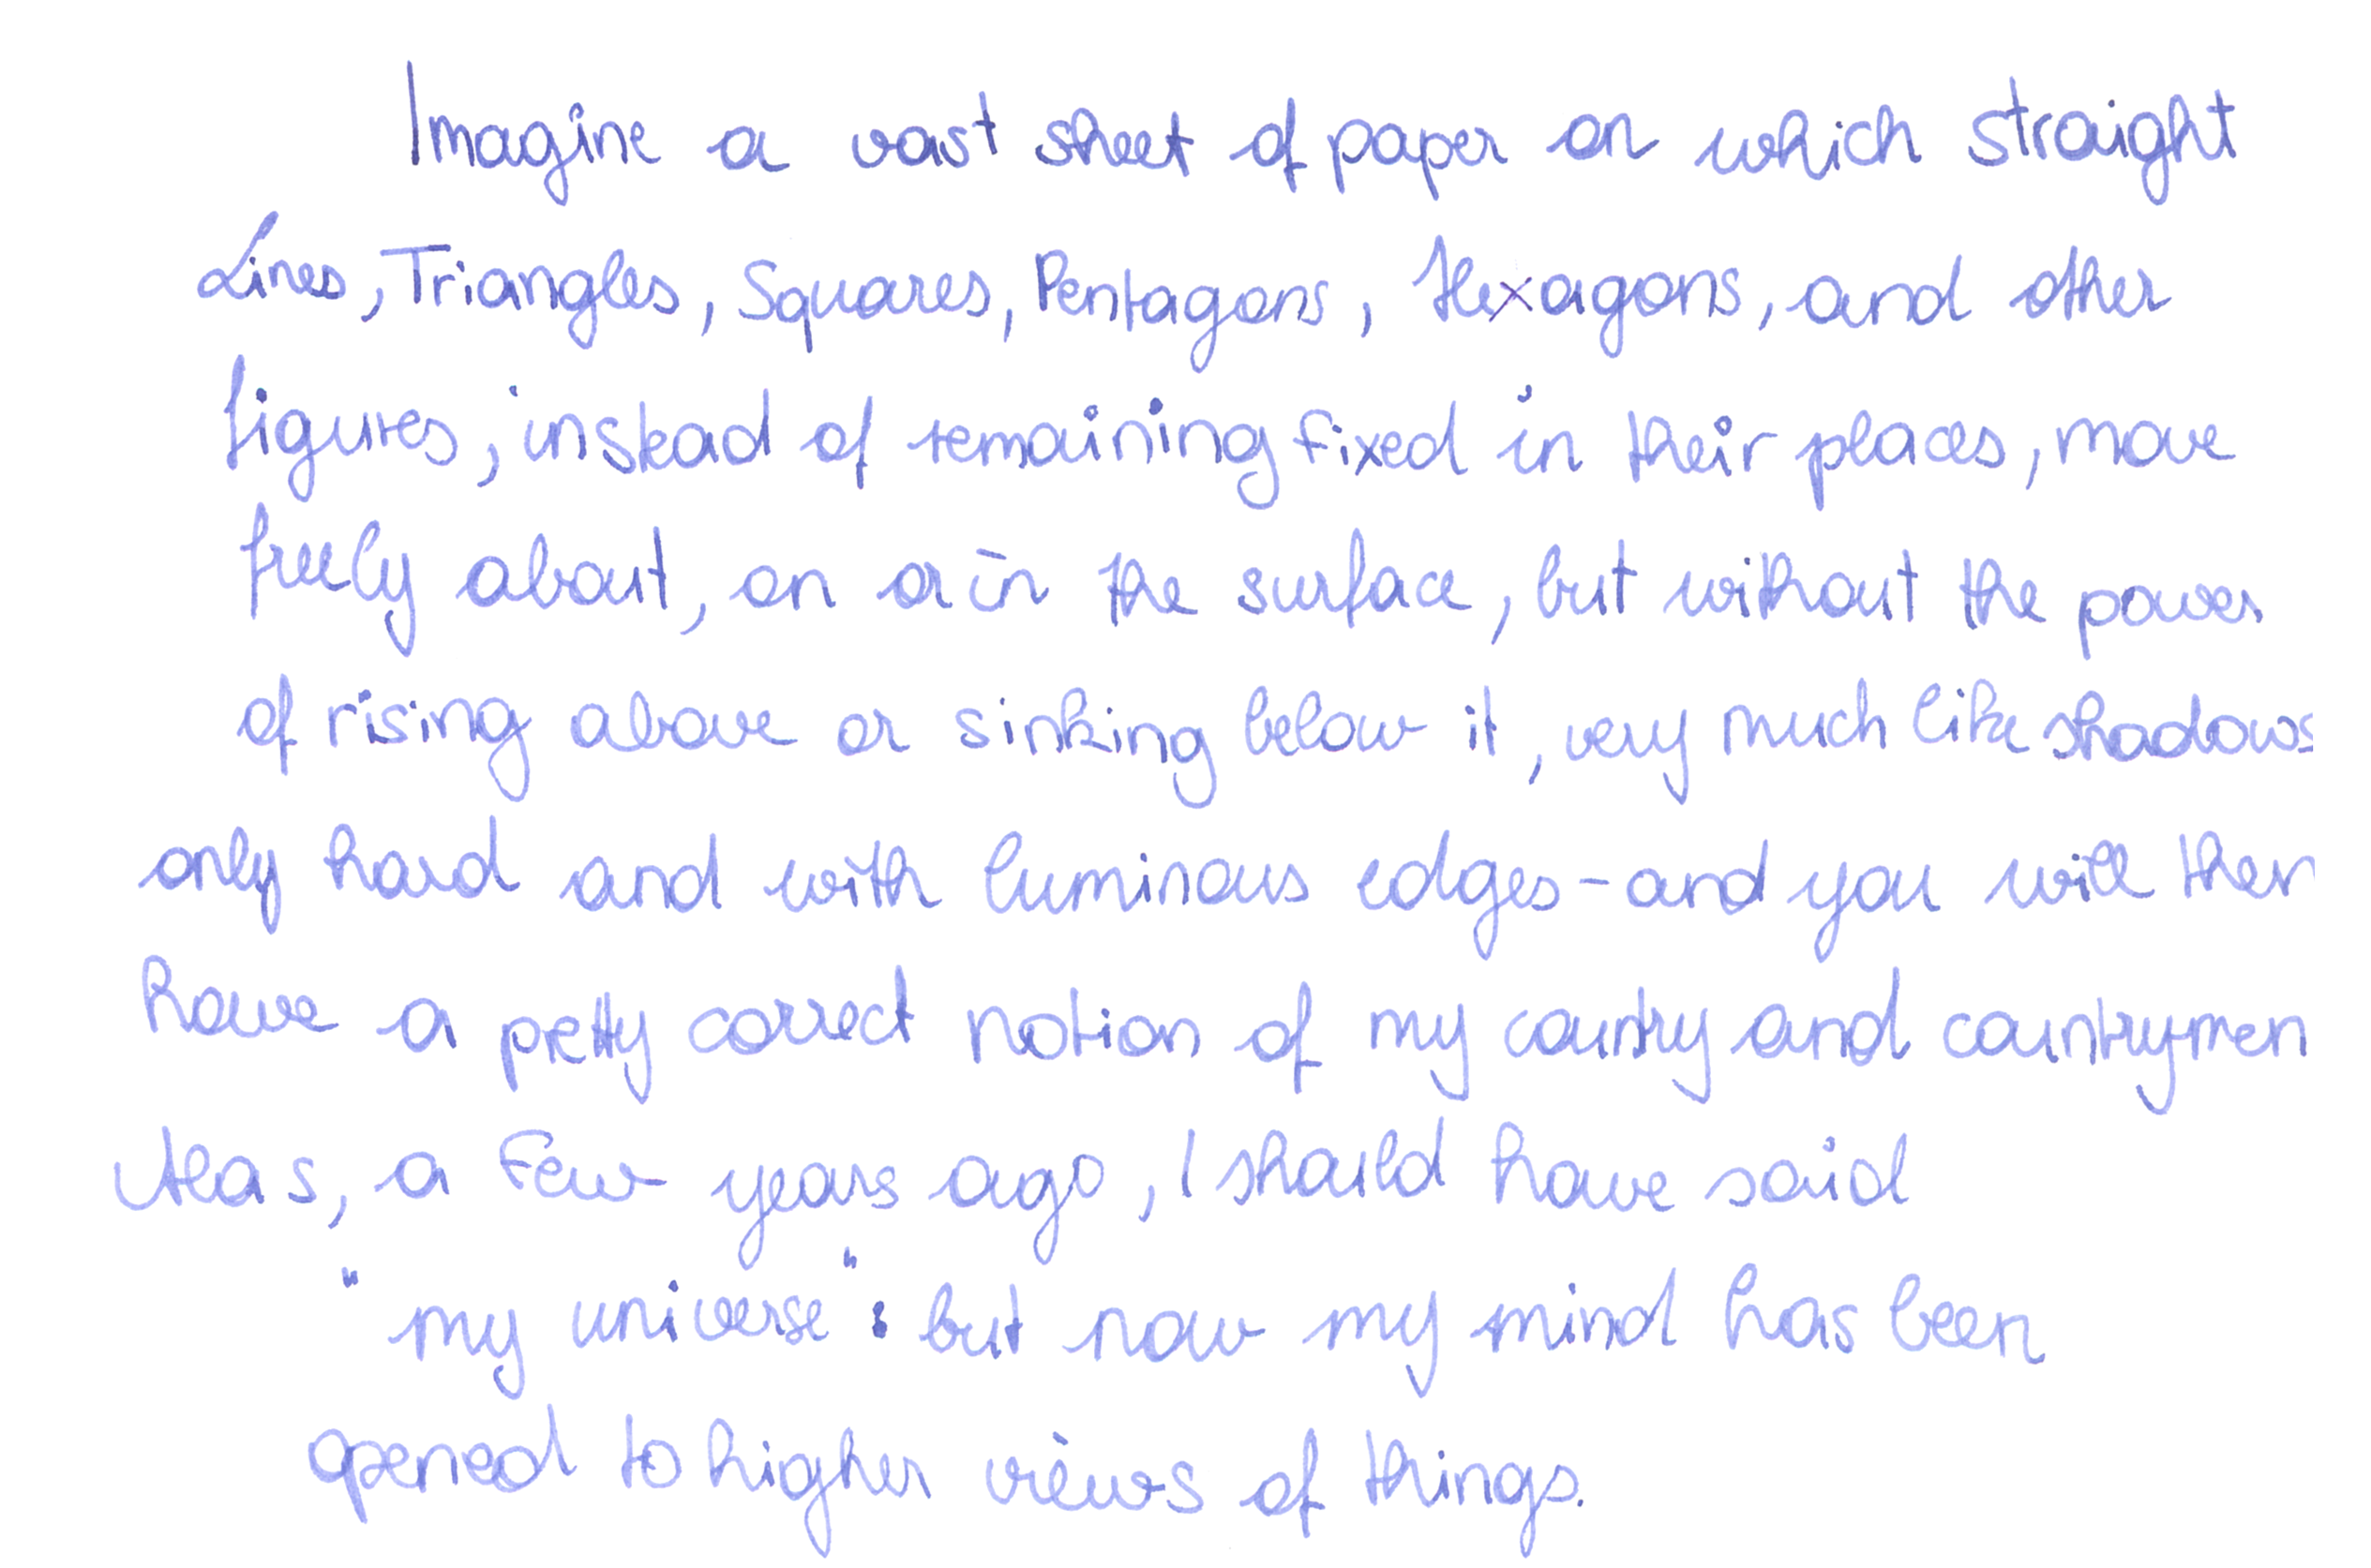 Imagine a vast sheet of paper on which straight
Lines, Triangles, Squares, Pentagons, Hexagons, and other
figures, instead of remaining fixed in their places, move
freely about, on or in the surface, but without the power
of rising above or sinking below it, very much like shadows
only hard and with luminous edges - and you will then
have a pretty correct notion of my country and countrymen
Alas, a few years ago, I should have said
"my universe": but now my mind has been
opened to higher views of things.